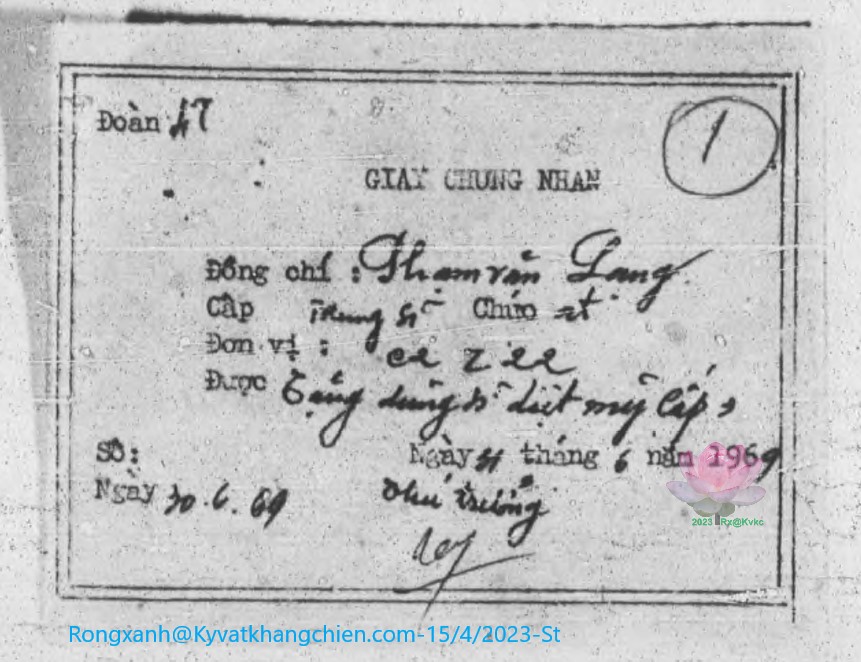 Đoàn 47
1
GIAY CHUNG NHAN
Đồng chí : Phạm văn Lạng
Cấp Trung sĩ Chức at
Đơn vị : c2 z 22
Được Tặng dũng sĩ diệt mỹ cấp
Số: Ngày 4 tháng 6 năm 1969
Ngày 30.6.69 Thủ trưởng
2023 Rx@Kvkc
Rongxanh@Kyvatkhangchien.com-15/4/2023-St